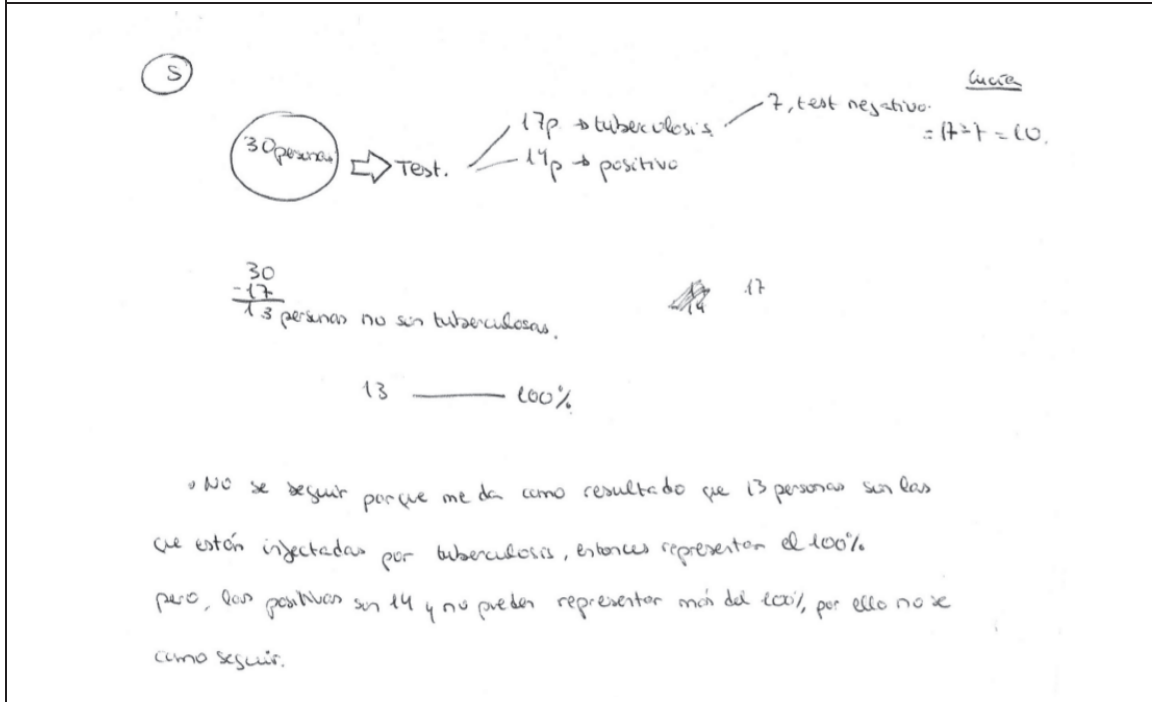 5
Lucía
30 personas ⇒ Test.
17p → tuberculosis
7, test negativo.
= 17-7 = 10.
14p → positivo
30
-17
13 personas no son tuberculosas.
14
17
13 — 100%
• No se seguir porque me da como resultado que 13 personas son las
que están infectadas por tuberculosis, entonces representan el 100%
pero, las positivas son 14 y no pueden representar más del 100%, por ello no se
como seguir.